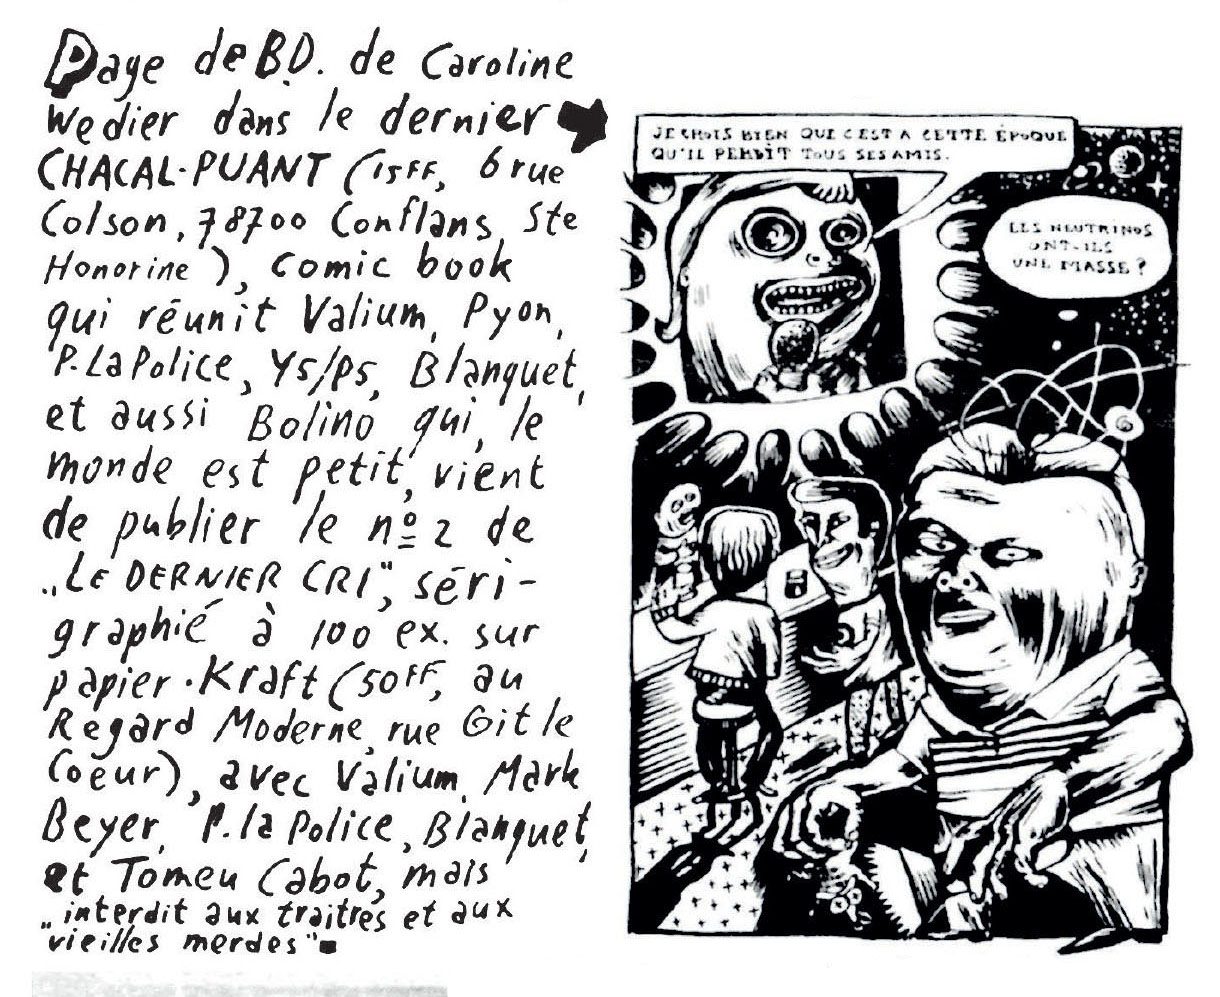 Page de B.D. de Caroline
Wedier dans le dernier
CHACAL-PUANT (15FF, 6 rue
Colson, 78700 Conflans Ste
Honorine), comic book
qui réunit Valium, Pyon,
P. La Police, Y5/P5, Blanquet,
et aussi Bolino qui, le
monde est petit, vient
de publier le nº 2 de
„LE DERNIER CRI", séri-
graphié à 100 ex. sur
papier-Kraft (50FF, au
Regard Moderne, rue Git le
Coeur), avec Valium, Mark
Beyer, P. la Police, Blanquet,
et Tomeu Cabot, mais
„interdit aux traitres et aux
vieilles merdes"
JE CROIS BIEN QUE C'EST A CETTE ÉPOQUE
QU'IL PERDÎT TOUS SES AMIS.
LES NEUTRINOS
ONT-ILS
UNE MASSE ?